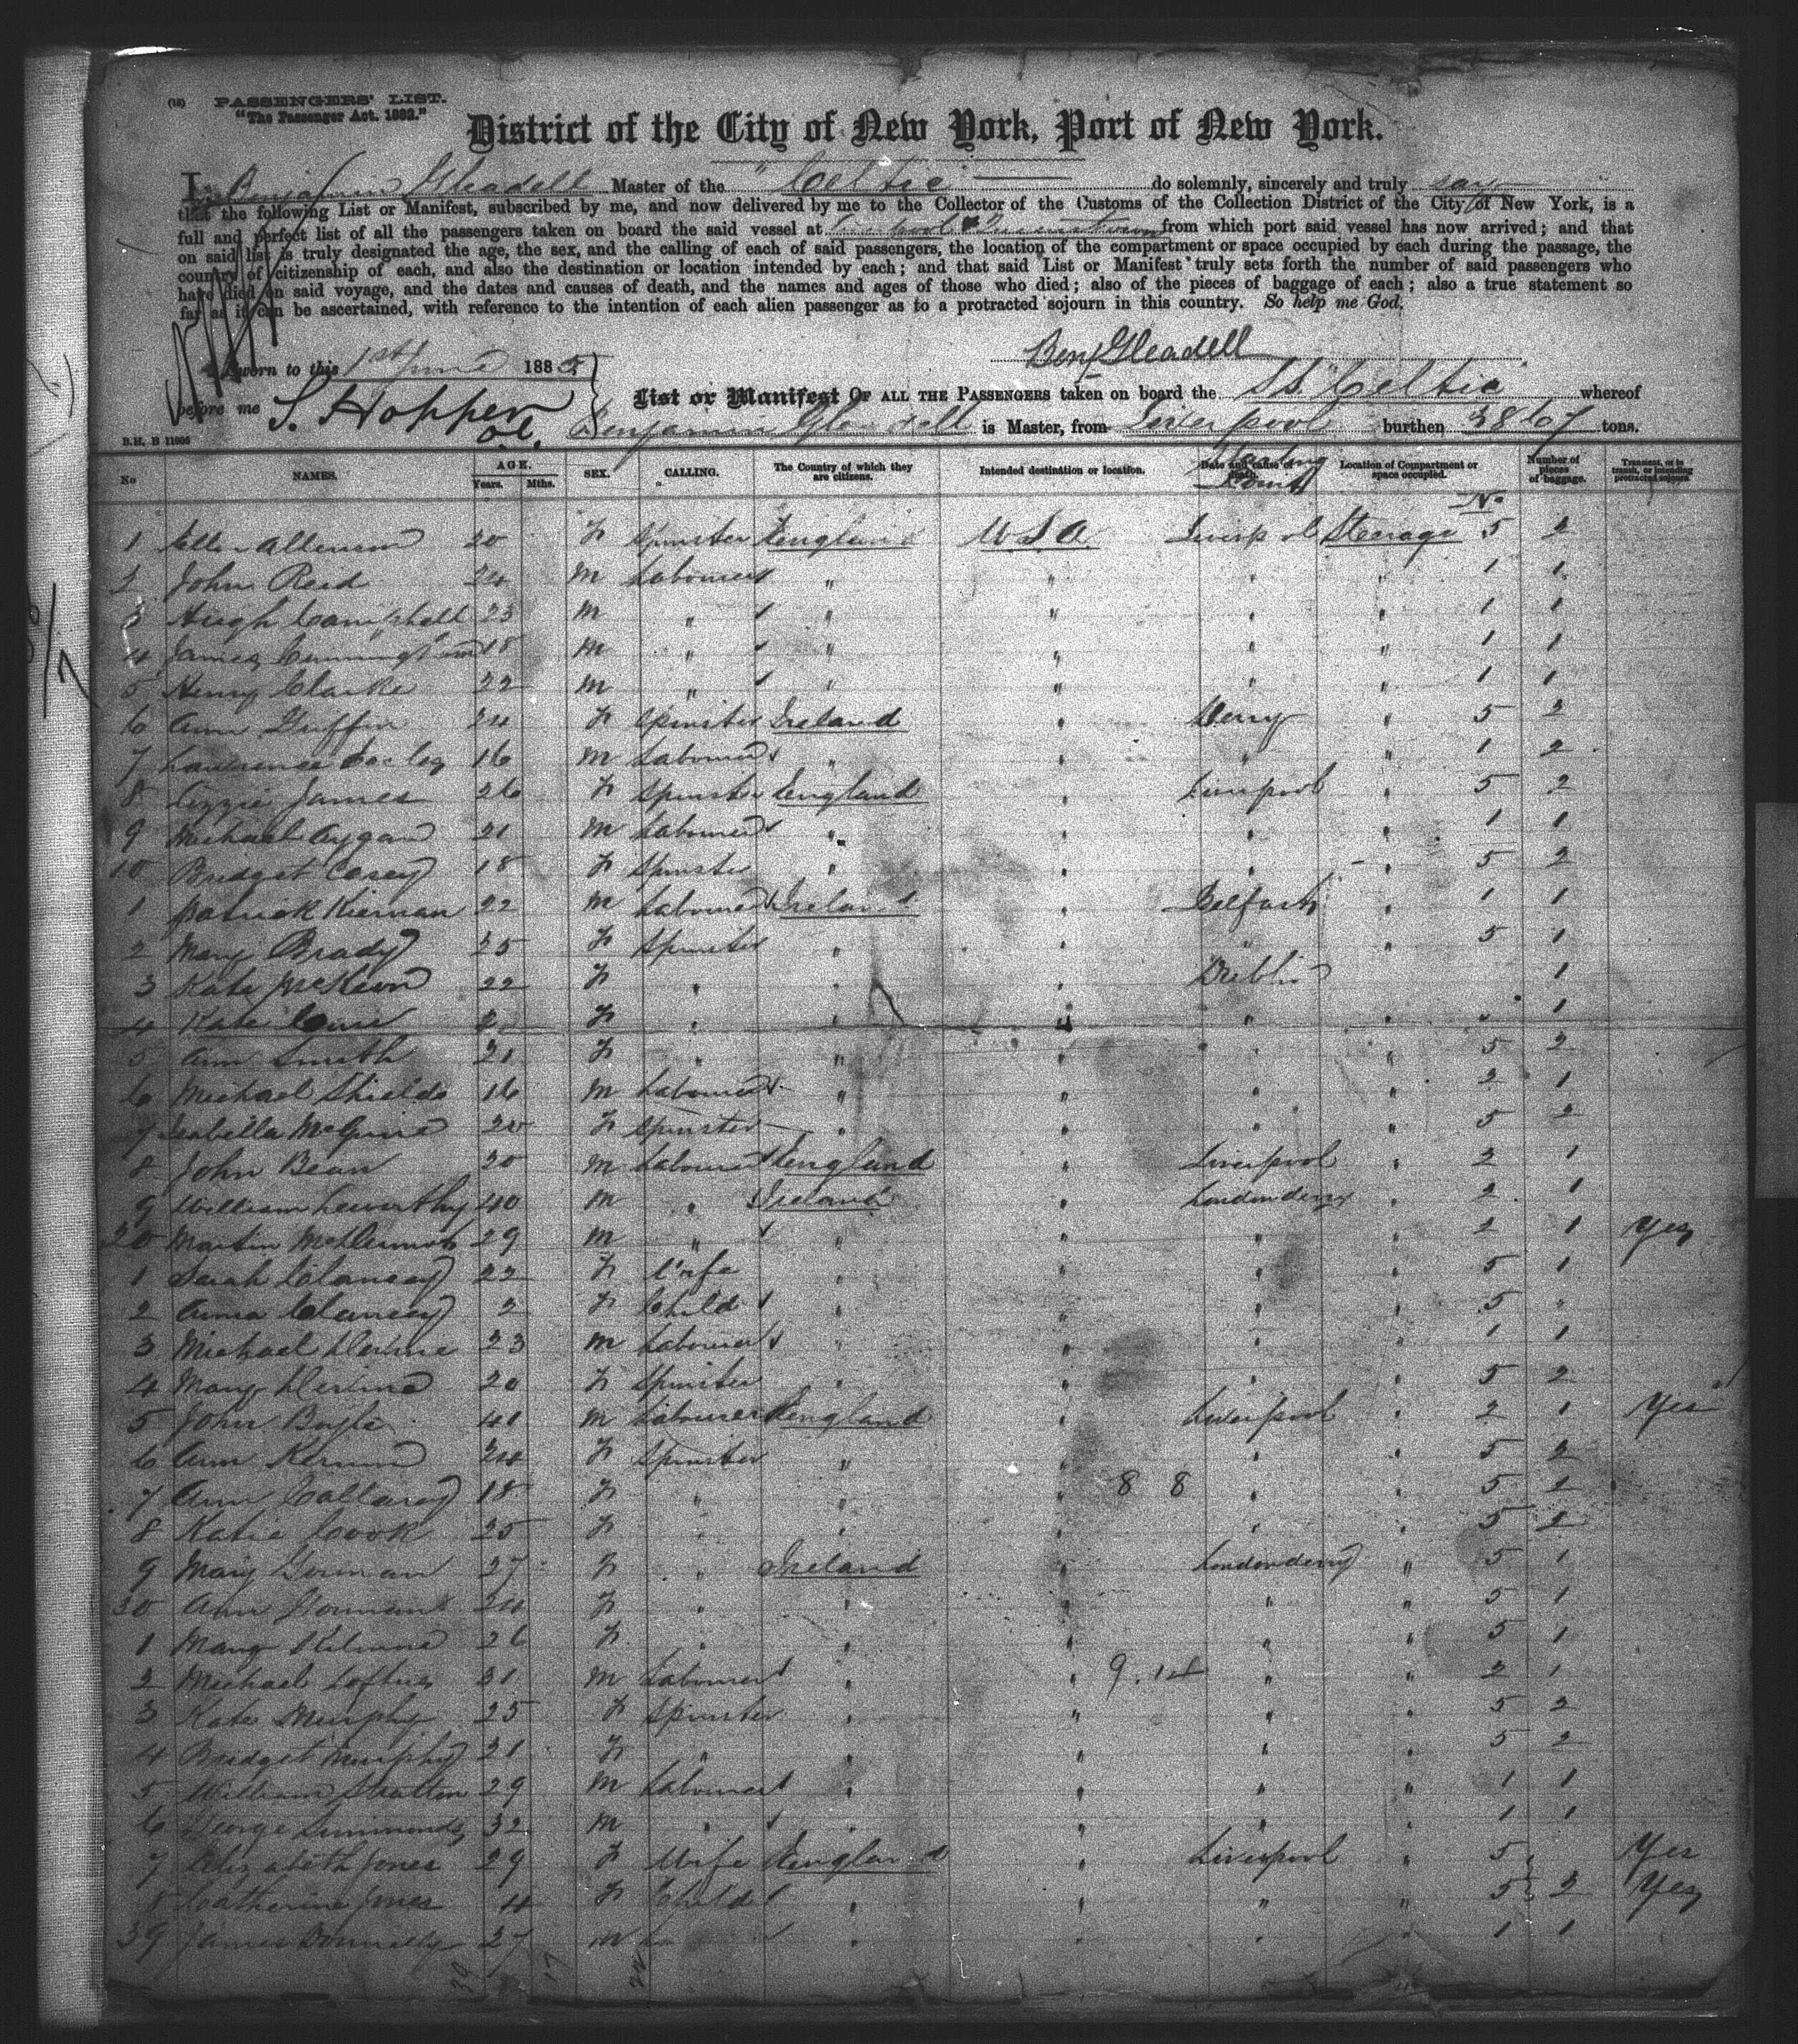 (12) PASSENGERS' LIST.
"The Passenger Act, 1882."
District of the City of New York, Port of New York.
I, Benjamin Gleadell Master of the "Celtic" do solemnly, sincerely and truly say
that the following List or Manifest, subscribed by me, and now delivered by me to the Collector of the Customs of the Collection District of the City of New York, is a
full and perfect list of all the passengers taken on board the said vessel at Liverpool & Queenstown from which port said vessel has now arrived; and that
on said list is truly designated the age, the sex, and the calling of each of said passengers, the location of the compartment or space occupied by each during the passage, the
country of citizenship of each, and also the destination or location intended by each; and that said List or Manifest truly sets forth the number of said passengers who
have died on said voyage, and the dates and causes of death, and the names and ages of those who died; also of the pieces of baggage of each; also a true statement so
far as it can be ascertained, with reference to the intention of each alien passenger as to a protracted sojourn in this country. So help me God.
Benj Gleadell
Sworn to this 1st June 1885
before me S. Hopper
List or Manifest OF ALL THE PASSENGERS taken on board the SS "Celtic" whereof
Benjamin Gleadell is Master, from Liverpool burthen 3867 tons.
B.H. B 11005
No NAMES. AGE. Years. Mths. SEX. CALLING. The Country of which they are citizens. Intended destination or location. Date and cause of death. Starting Point Location of Compartment or space occupied. No Number of pieces of baggage. Transient, or in transit, or intending protracted sojourn
1 Ellen 20 F Spinster England USA Liverpool Steerage 5 2
2 John Reid 24 M Labourer " " " " 1 1
3 Hugh Campbell 23 M " " " " " 1 1
4 James Cunningham 18 M " " " " " 1 1
5 Henry Clarke 22 M " " " " " 1 1
6 Ann Griffin 24 F Spinster Ireland " Derry " 5 2
7 Lawrence 16 M Labourer " " " " 1 2
8 Lizzie James 26 F Spinster England " Liverpool " 5 2
9 Michael 21 M Labourer " " " " 1 1
10 Bridget Casey 18 F Spinster " " " " 5 2
1 Patrick Kiernan 22 M Labourer Ireland " Belfast " 1 1
2 Mary Brady 25 F Spinster " " " " 5 1
3 Kate McKeon 22 F " " " Dublin 1
4 Kate F " " " " " 1
5 Ann Smith 21 F " " " " " 5 2
6 Michael Shields 16 M Labourer " " " " 2 1
7 Isabella McGuire 20 F Spinster " " " " 5 2
8 John Bean 30 M Labourer England " Liverpool " 2 1
9 William 40 M " Ireland " Londonderry " 2 1
20 Martin McDermott 29 M " " " " " 2 1 Yes
1 Sarah Clancey 22 F Wife " " " " 5 1
2 Anna Clancey 2 F Child " " " " 5 "
3 Michael Devine 23 M Labourer " " " " 1 1
4 Mary Devine 20 F Spinster " " " " 5 2
5 John Boyle 41 M Labourer England " Liverpool " 2 1 Yes
6 Ann 24 F Spinster " " " " 5 2
7 Ann 18 F " " " 8 8 " " 5 2
8 Katie Cook 25 F " " " " " 5 2
9 Mary Gorman 27 F " Ireland " Londonderry " 5 1
30 Ann Gorman 24 F " " " " " 5 1
1 Mary 26 F " " " " " 5 1
2 Michael Loftus 31 M Labourer " " " " 2 1
3 Kate Murphy 25 F Spinster " " " " 5 2
4 Bridget Murphy 21 F " " " " " 5 2
5 William Stratton 29 M Labourer " " " " 1 1
6 George Simmonds 32 M " " " " " 1 1
7 Elizabeth Jones 29 F Wife England " Liverpool " 5 Yes
8 Catherine Jones 4 F Child " " " " 5 2 Yes
39 James Donnelly 27 M " " " " 1 1